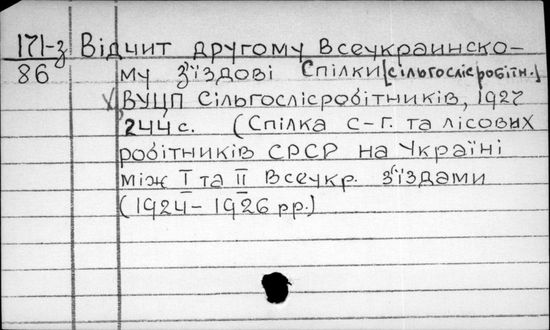 171-з Відчит другому Всеукраинско-
86 му з'їздові Спілки [сільгоспліс робітн.]
ВУЦП Сільгосплісробітників, 1927
244 с. (Спілка с-г. та лісових
робітників СРСР на Україні
між I та II Всеукр. з'їздами
(1924-1926 рр.)